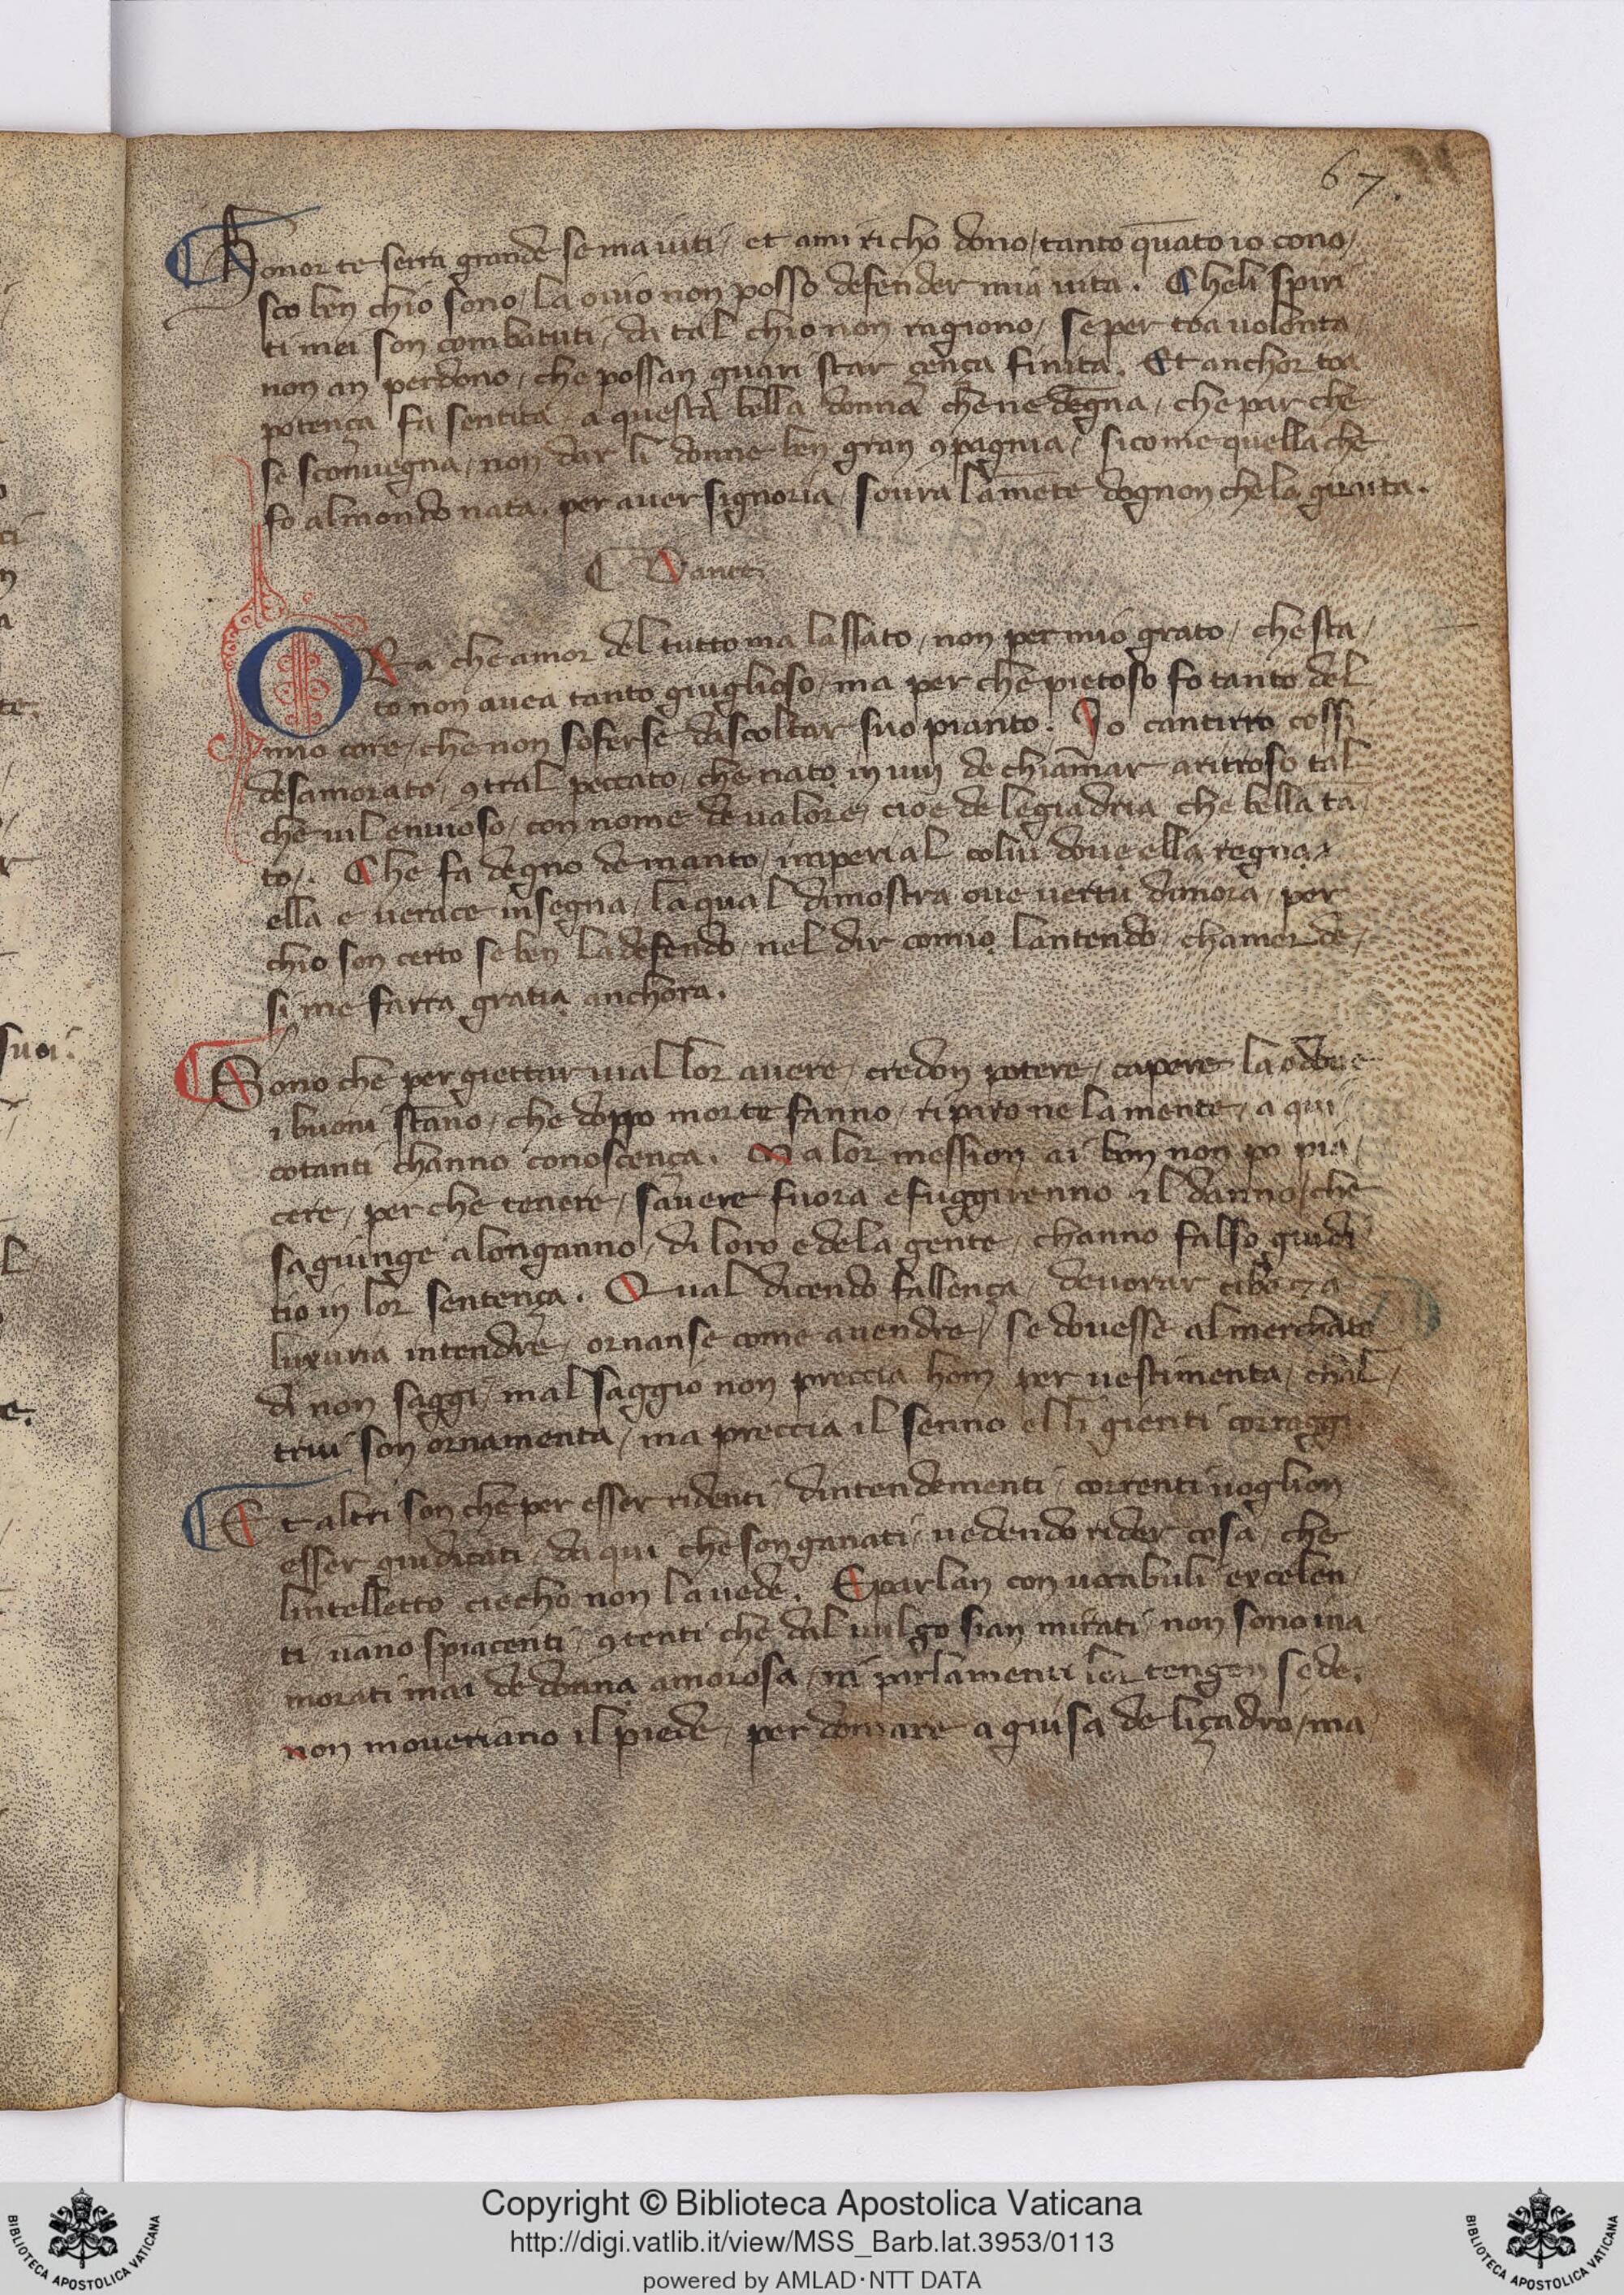 67.
Honor te serra grande se ma iuti / et ami richo dono / tanto q̄uato io cono /
sco ben chio sono / la ouio non posso defender mia uita . Cheli spiri
ti mei son combatuti / da tal chio non ragiono / se per toa uolonta
non an perdono / che possan guari star çença finita . Et anchor toa
potença fa sentita / a questa bella donna che ne degna / che par che
se sconuegna / non dar li donne ben gran ꝯpagnia / sicome quella che
fo al mondo nata . per auer signoria / soura lam̄ete dognon che la guaita .
Dante
ORa che amor del tutto ma lassato / non per mio grato / che sta /
to non auea tanto giuglioso / ma per che pietoso fo tanto del
mio core / che non soferse dascoltar suo pianto . Io cantirro cossi
desamorato / ꝯtral peccato / che nato in nui de chiamar aritroso tal
che uil enuioso / con nome de ualore / cioe de legiadria che bella ta
to / . Che fa degno de manto / imperial colui doue ella regna /
ella e uerace insegna / la qual dimostra oue uertu dimora / per
chio son certo se ben la defendo / nel dir comio lantendo / chamor de /
si me farra gratia anchora .
Sono che per giettar uial lor auere / credon potere / capere la odoue
i buoni stano / che doppo morte fanno / riparo ne la mente / a qui
cotanti channo conoscença . Ma lor mession ai bon non po pia /
cere / per che tenere / sauere fuora e fuggirenno il danno / che
saguinge a longanno / di loro e de la gente / channo falso giudi
tio in lor sentença . Qual dicendo fallença / deuorar cibo ⁊ a
luxuria intendre / ornanse come auendre / se douesse al merchāte
di non saggi / mal saggio non preccia hom per uestimenta / chal /
trui son ornamenta / ma preccia il senno elli gienti corraggi
Et altri son che per esser ridenti / dintendementi / correnti uoglion
esser giudicati / da qui che son ganati / uedendo rider cosa / che
lintelletto ciecho non la uede . E parlan con uocabuli excelen /
ti / uano spiacenti / ꝯtenti che dal uulgo sian mirati / non sono ina
morati mai de donna amorosa / ni parlamenti lor tengon sede .
non moueriano il piede / per domare a guisa de liçadro / ma
Copyright © Biblioteca Apostolica Vaticana
http://digi.vatlib.it/view/MSS_Barb.lat.3953/0113
powered by AMLAD·NTT DATA
BIBLIOTECA APOSTOLICA VATICANA
BIBLIOTECA APOSTOLICA VATICANA